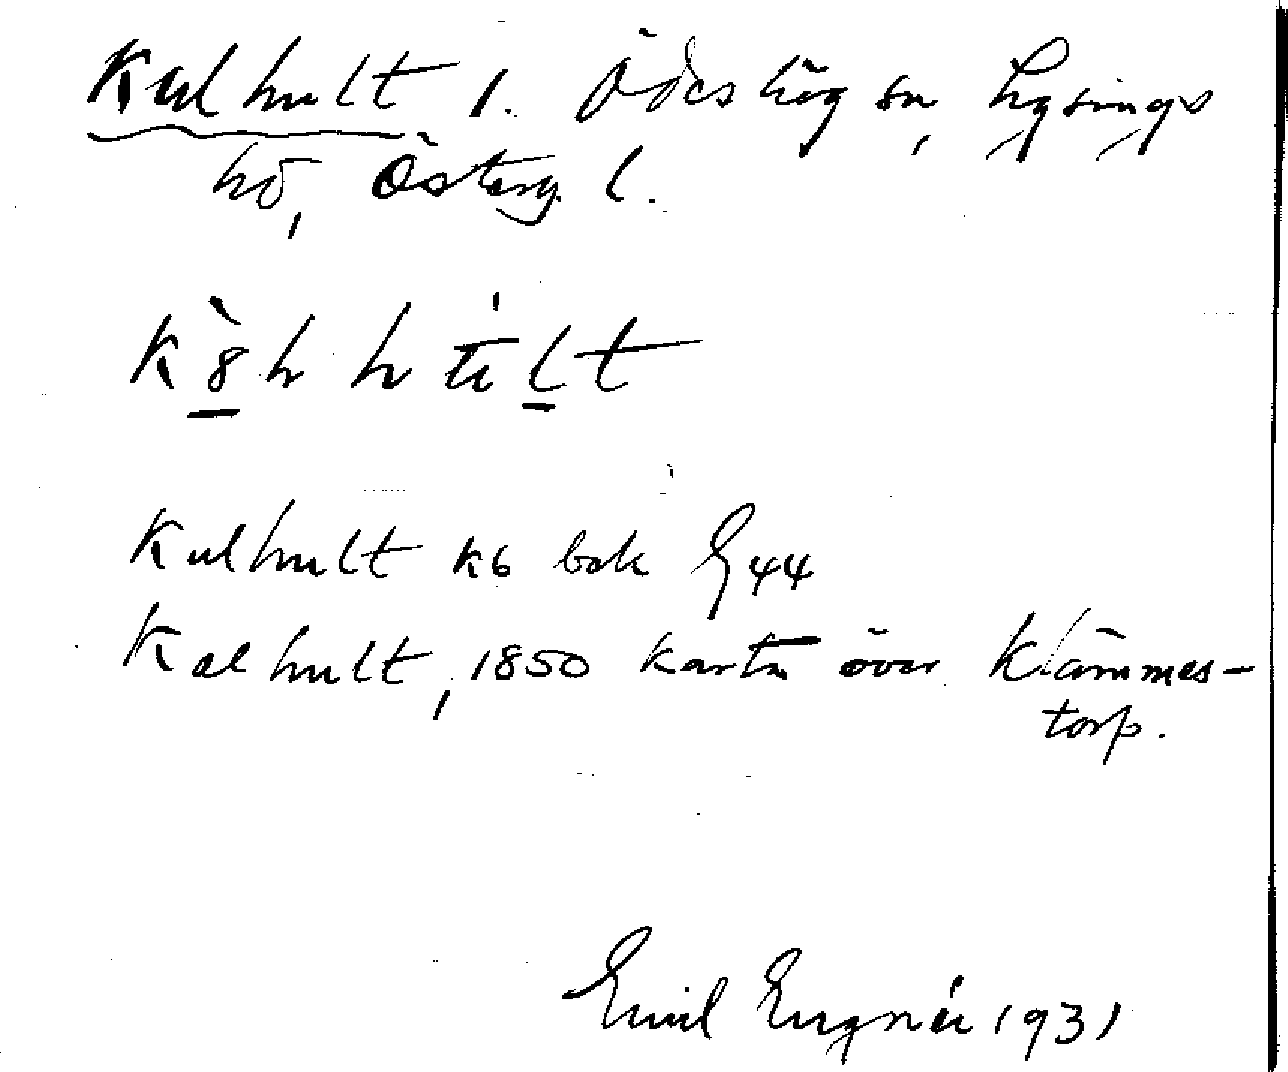 Kulhult l. Ödeshög sn, Lysings
hd, Österg. l.
Kulhult kb bok
Kalhult, 1850 karta över Klämmes-
torp.
Emil Engnér 1931